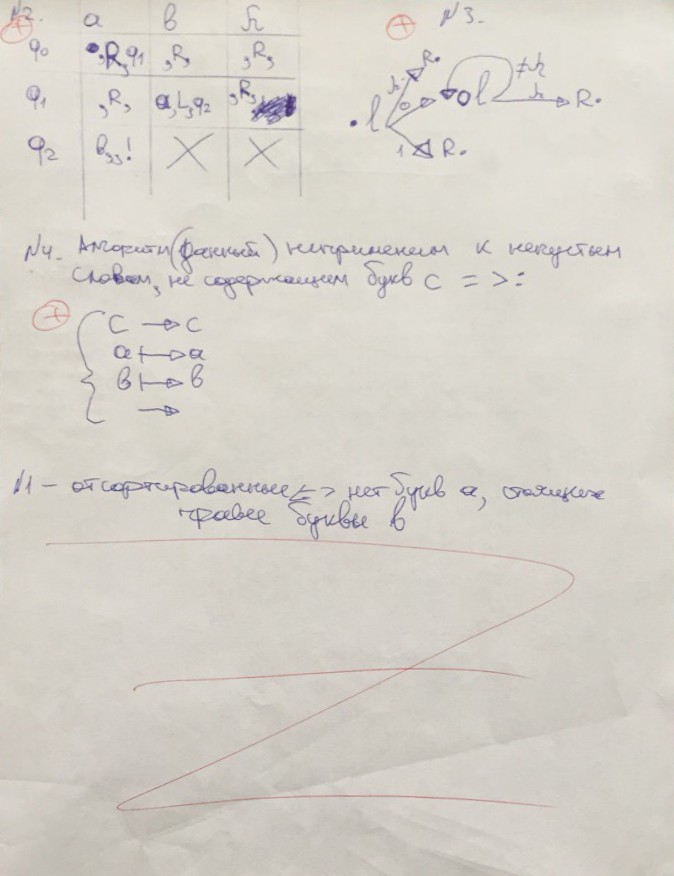 N2. a в ћ
q0 ,R,q1 ,R, ,R,
q1 ,R, a,L,q2 ,R,
q2 в,,! X X
N3.
R.
ћ ≠ћ
. l 0 0 l ћ R.
1 R.
N4. Алгоритм (данный) неприменим к непустым
словам, не содержащим букв с =>:
+ { c → c
a ↦ a
в ↦ в
→
N1 – отсортированные <=> нет букв а, стоящих
правее буквы в